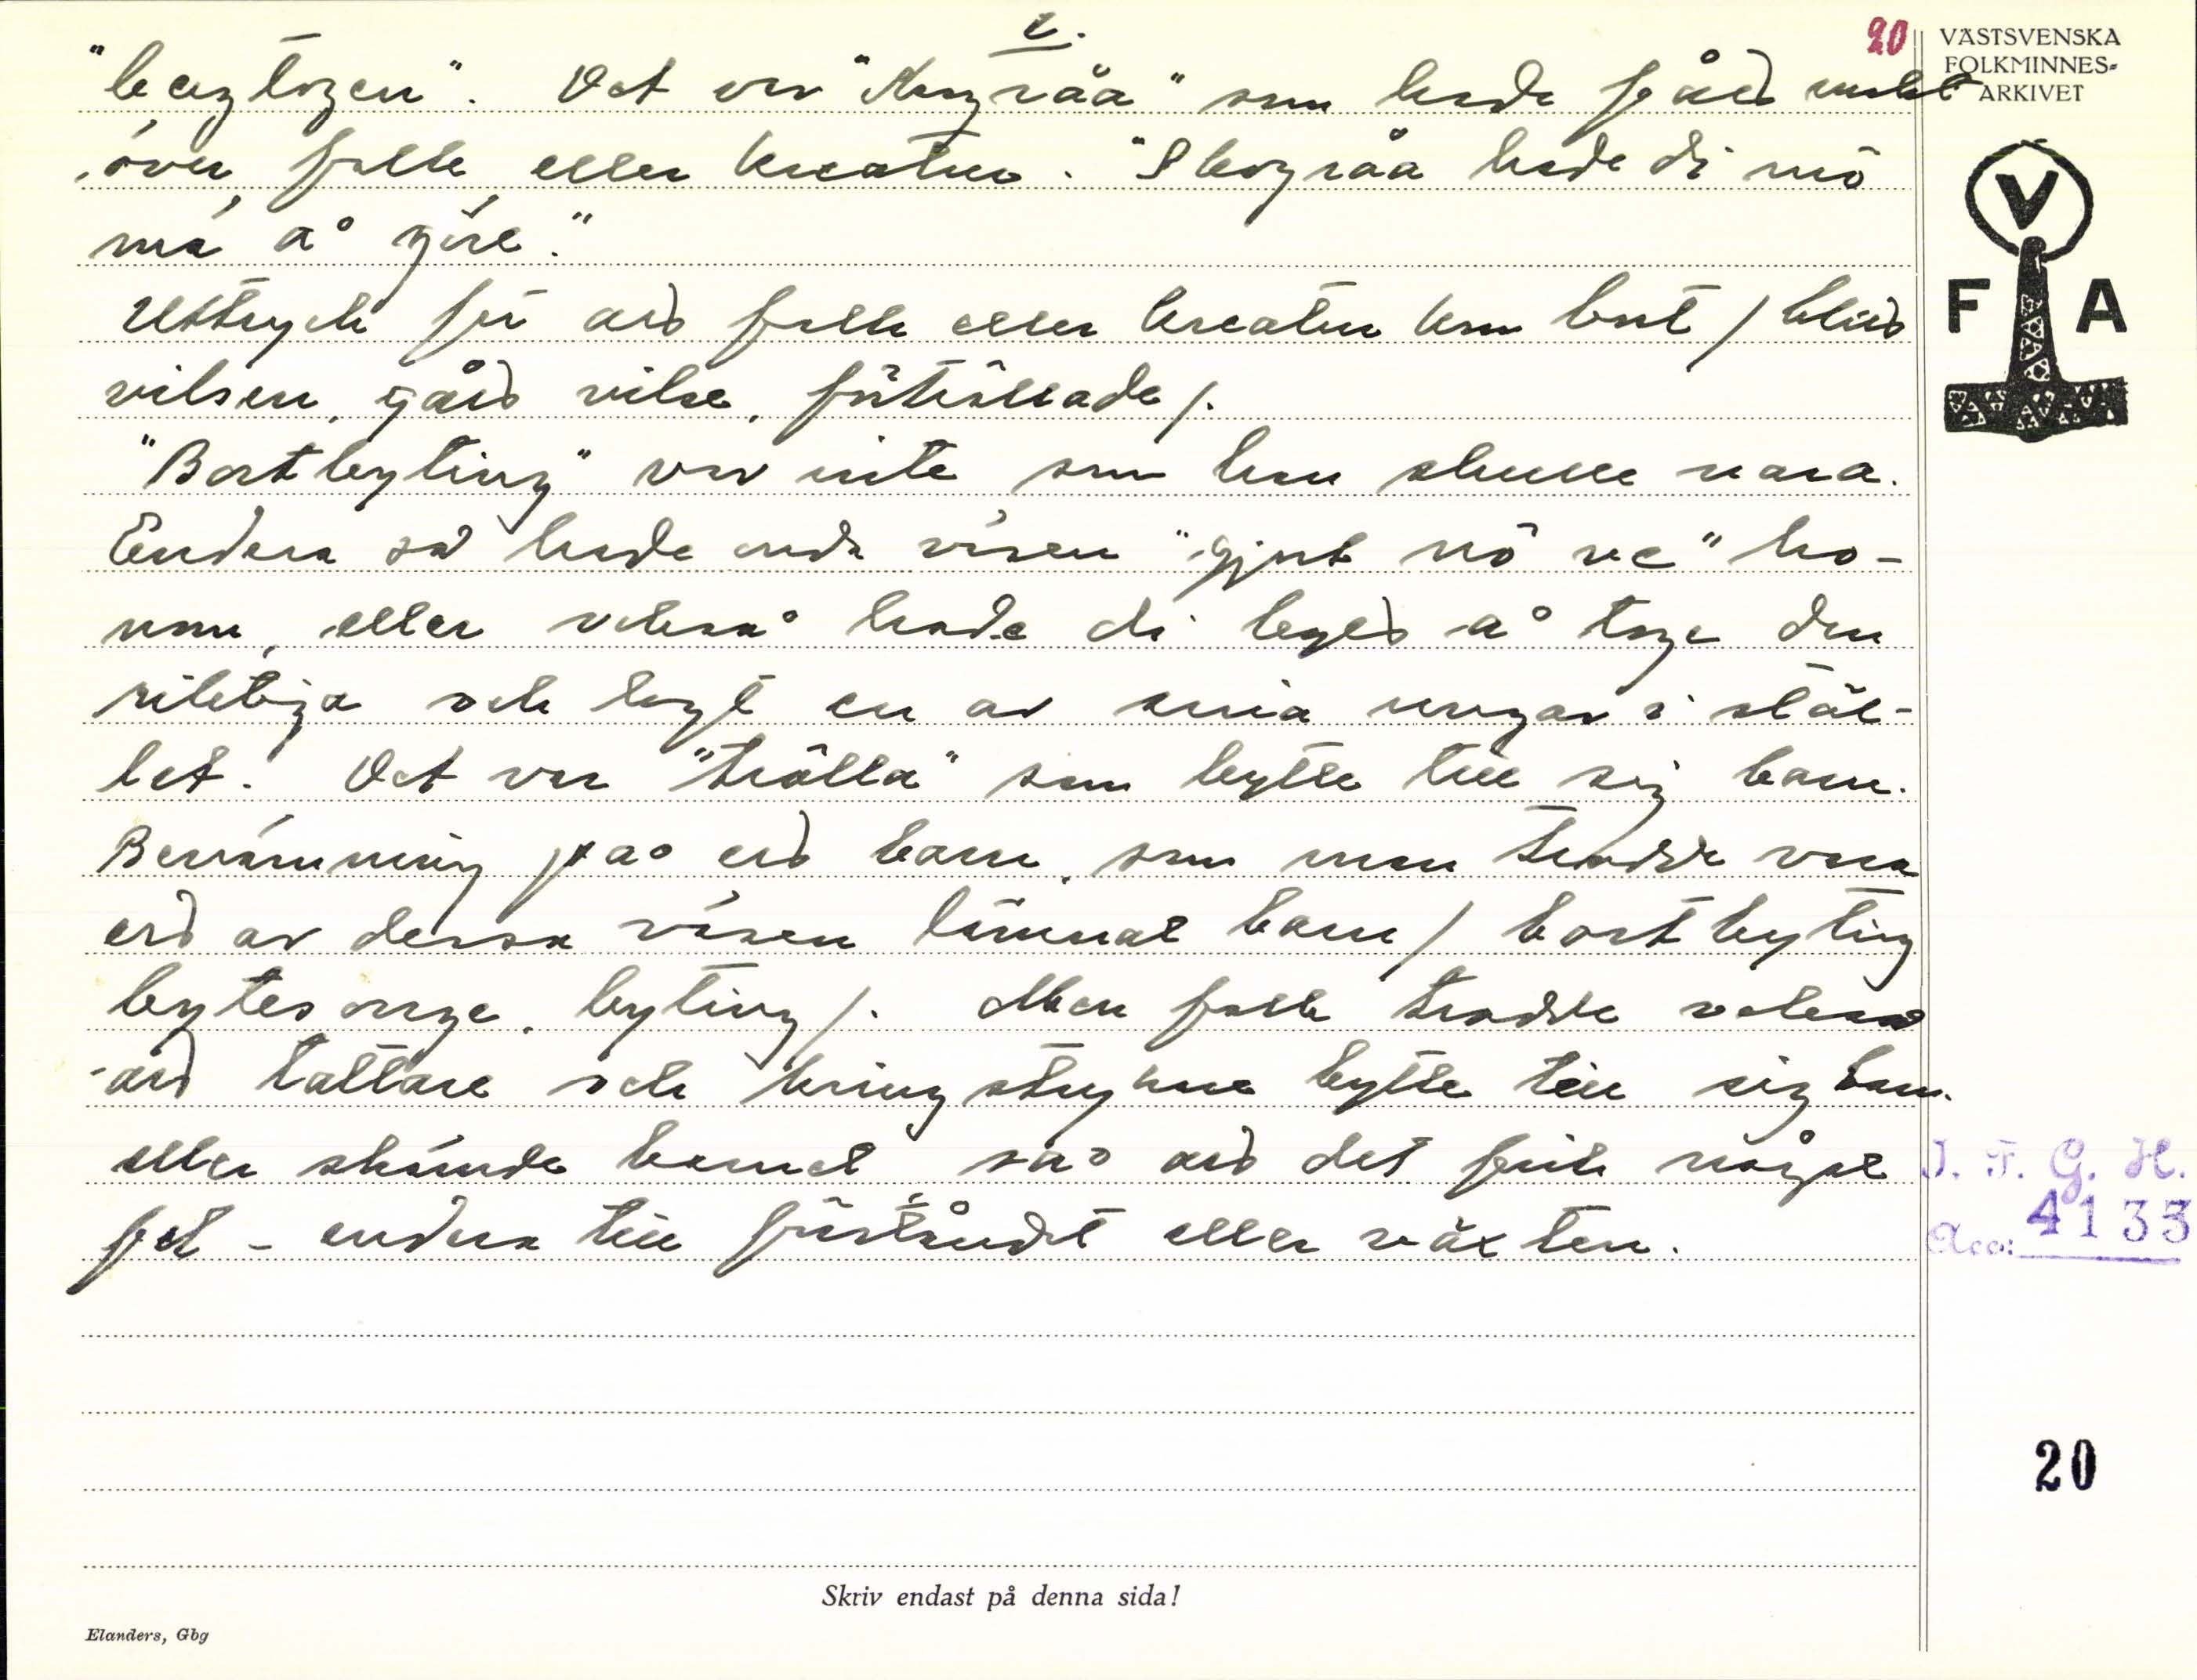 2.
20
VÄSTSVENSKA
FOLKMINNES-
ARKIVET
"bergtagen". Det var "skogråa" som hade fått makt
över folk eller kreatur. "Skogråa hade di nö
mä å göre."
Uttryck för att folk eller kreatur kom bort / blivit
vilsen, gått vilse, förtröllade /.
"Bortbyting" var inte som han skulle vara.
Endera så hade onda väsen "gjort nö ve" ho-
nom, eller också hade di bytt å tage den
riktiga och lagt en av sina ungar i stäl-
let. Det var "trölla" som bytte till sig barn.
Benämning på ett barn, som man trodde vara
ett av dessa väsen lämnat barn / bortbyting
bytesonge, byting /. Men folk trodde också
att tattare och kringstrykare bytte till sig barn
eller skämde barnet så att det fick något
fel - endera till förståndet eller växten.
F V A
I. F. G. H.
Acc: 4133
20
Skriv endast på denna sida!
Elanders, Gbg